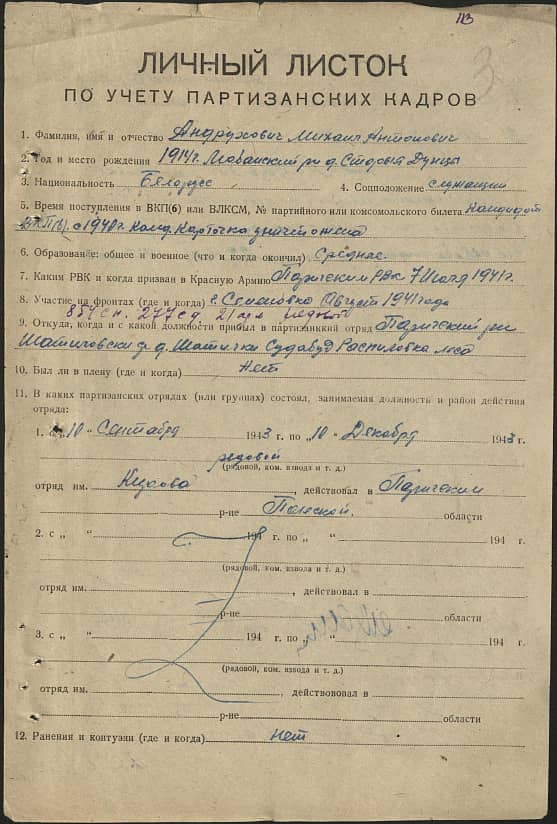 113
3
ЛИЧНЫЙ ЛИСТОК
ПО УЧЕТУ ПАРТИЗАНСКИХ КАДРОВ
1. Фамилия, имя и отчество Андрухович Михаил Антонович
2. Год и место рождения 1914 г. Любанский р-н д. Старыя
3. Национальность Белорус 4. Соцположение служащий
5. Время поступления в ВКП(б) или ВЛКСМ, № партийного или комсомольского билета Кандидат
ВКП(б) с 1940 г. Канд. Карточка уничтожена
6. Образование: общее и военное (что и когда окончил) Среднее
7. Каким РВК и когда призван в Красную Армию Паричским РВК 7 1941 г.
8. Участие на фронтах (где и когда) с. Семеновка Август 1941 года
854 с.п. 277 с.д. 21 рядовой
9. Откуда, когда и с какой должности прибыл в партизанский отряд Паричский р-н
д. Шатички
10. Был ли в плену (где и когда) Нет
11. В каких партизанских отрядах (или группах) состоял, занимаемая должность и район действия
отряда:
1. с „10 “ Сентября 1943 г. по „10 “ Декабря 1943 г.
рядовой
(рядовой, ком. взвода и т. д.)
отряд им. Кирова , действовал в Паричским
р-не Полесской области
2. с „ “ 194 г. по „ “ 194 г.
(рядовой, ком. взвода и т. д.)
отряд им. , действовал в
р-не области
3. с „ “ 194 г. по „ “ 194 г.
(рядовой, ком. взвода и т. д.)
отряд им. , действововал в
р-не области
12. Ранения и контузии (где и когда) Нет